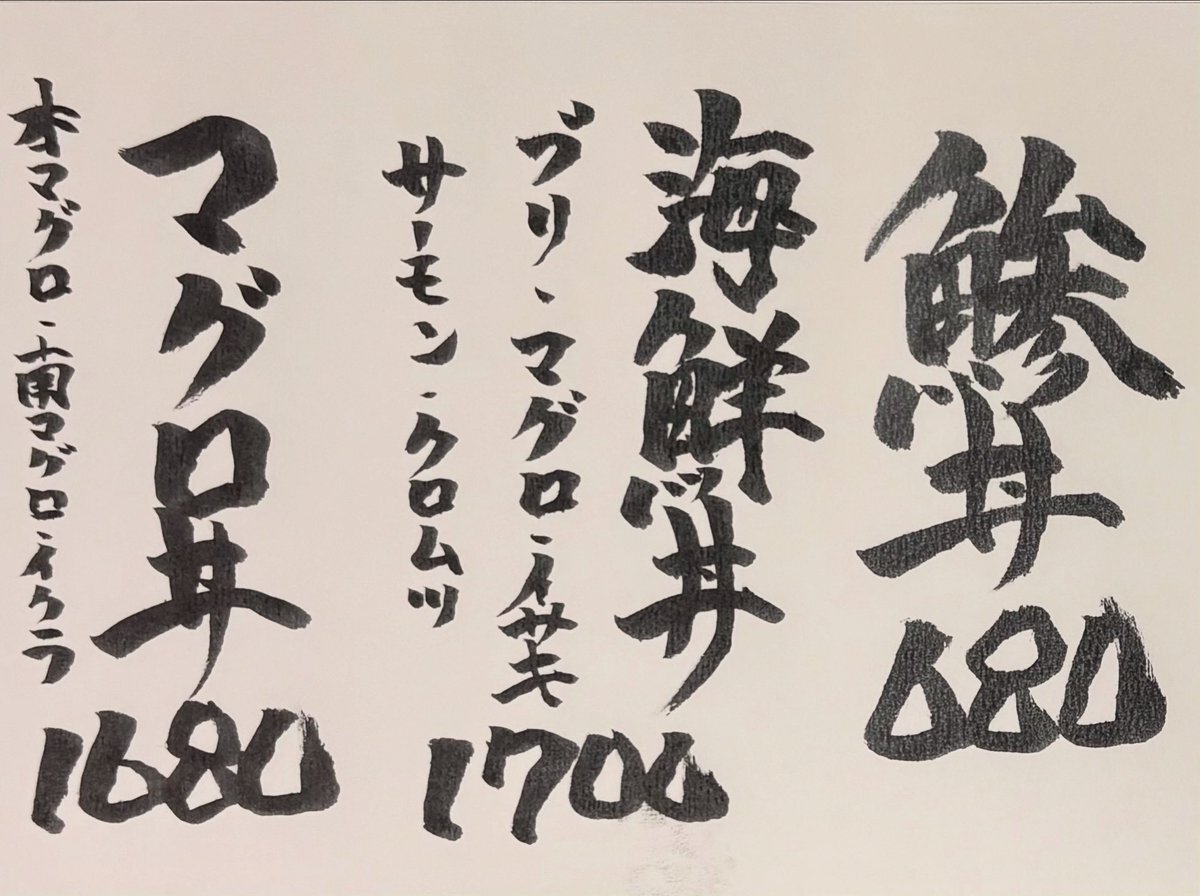 鯵丼
680
海鮮丼
ブリ、マグロ、イサキ
サーモン、クロムツ
1700
マグロ丼
本マグロ、南マグロ、イクラ
1680